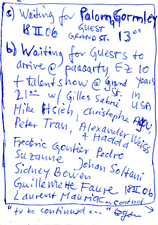 a) Waiting for Palom Gormley
18 II 06 GUEST GRAND ST. 13⁰⁰
b) Waiting for GUESTS to
arrive @ paaarty EZ 10
+ talent show @ grand years
21⁰⁰ w/ Gilles Sabrei St. in USA
Mike Hsieh, Christophe
Peter Tran, Alexander Weiss
+ Hadda
Fredric Gontier Pedro
Suzanne Johan Soltani
Sidney Bowen
Guillemette Faure 18 II 06
Laurent Mauricé
"to be continued...